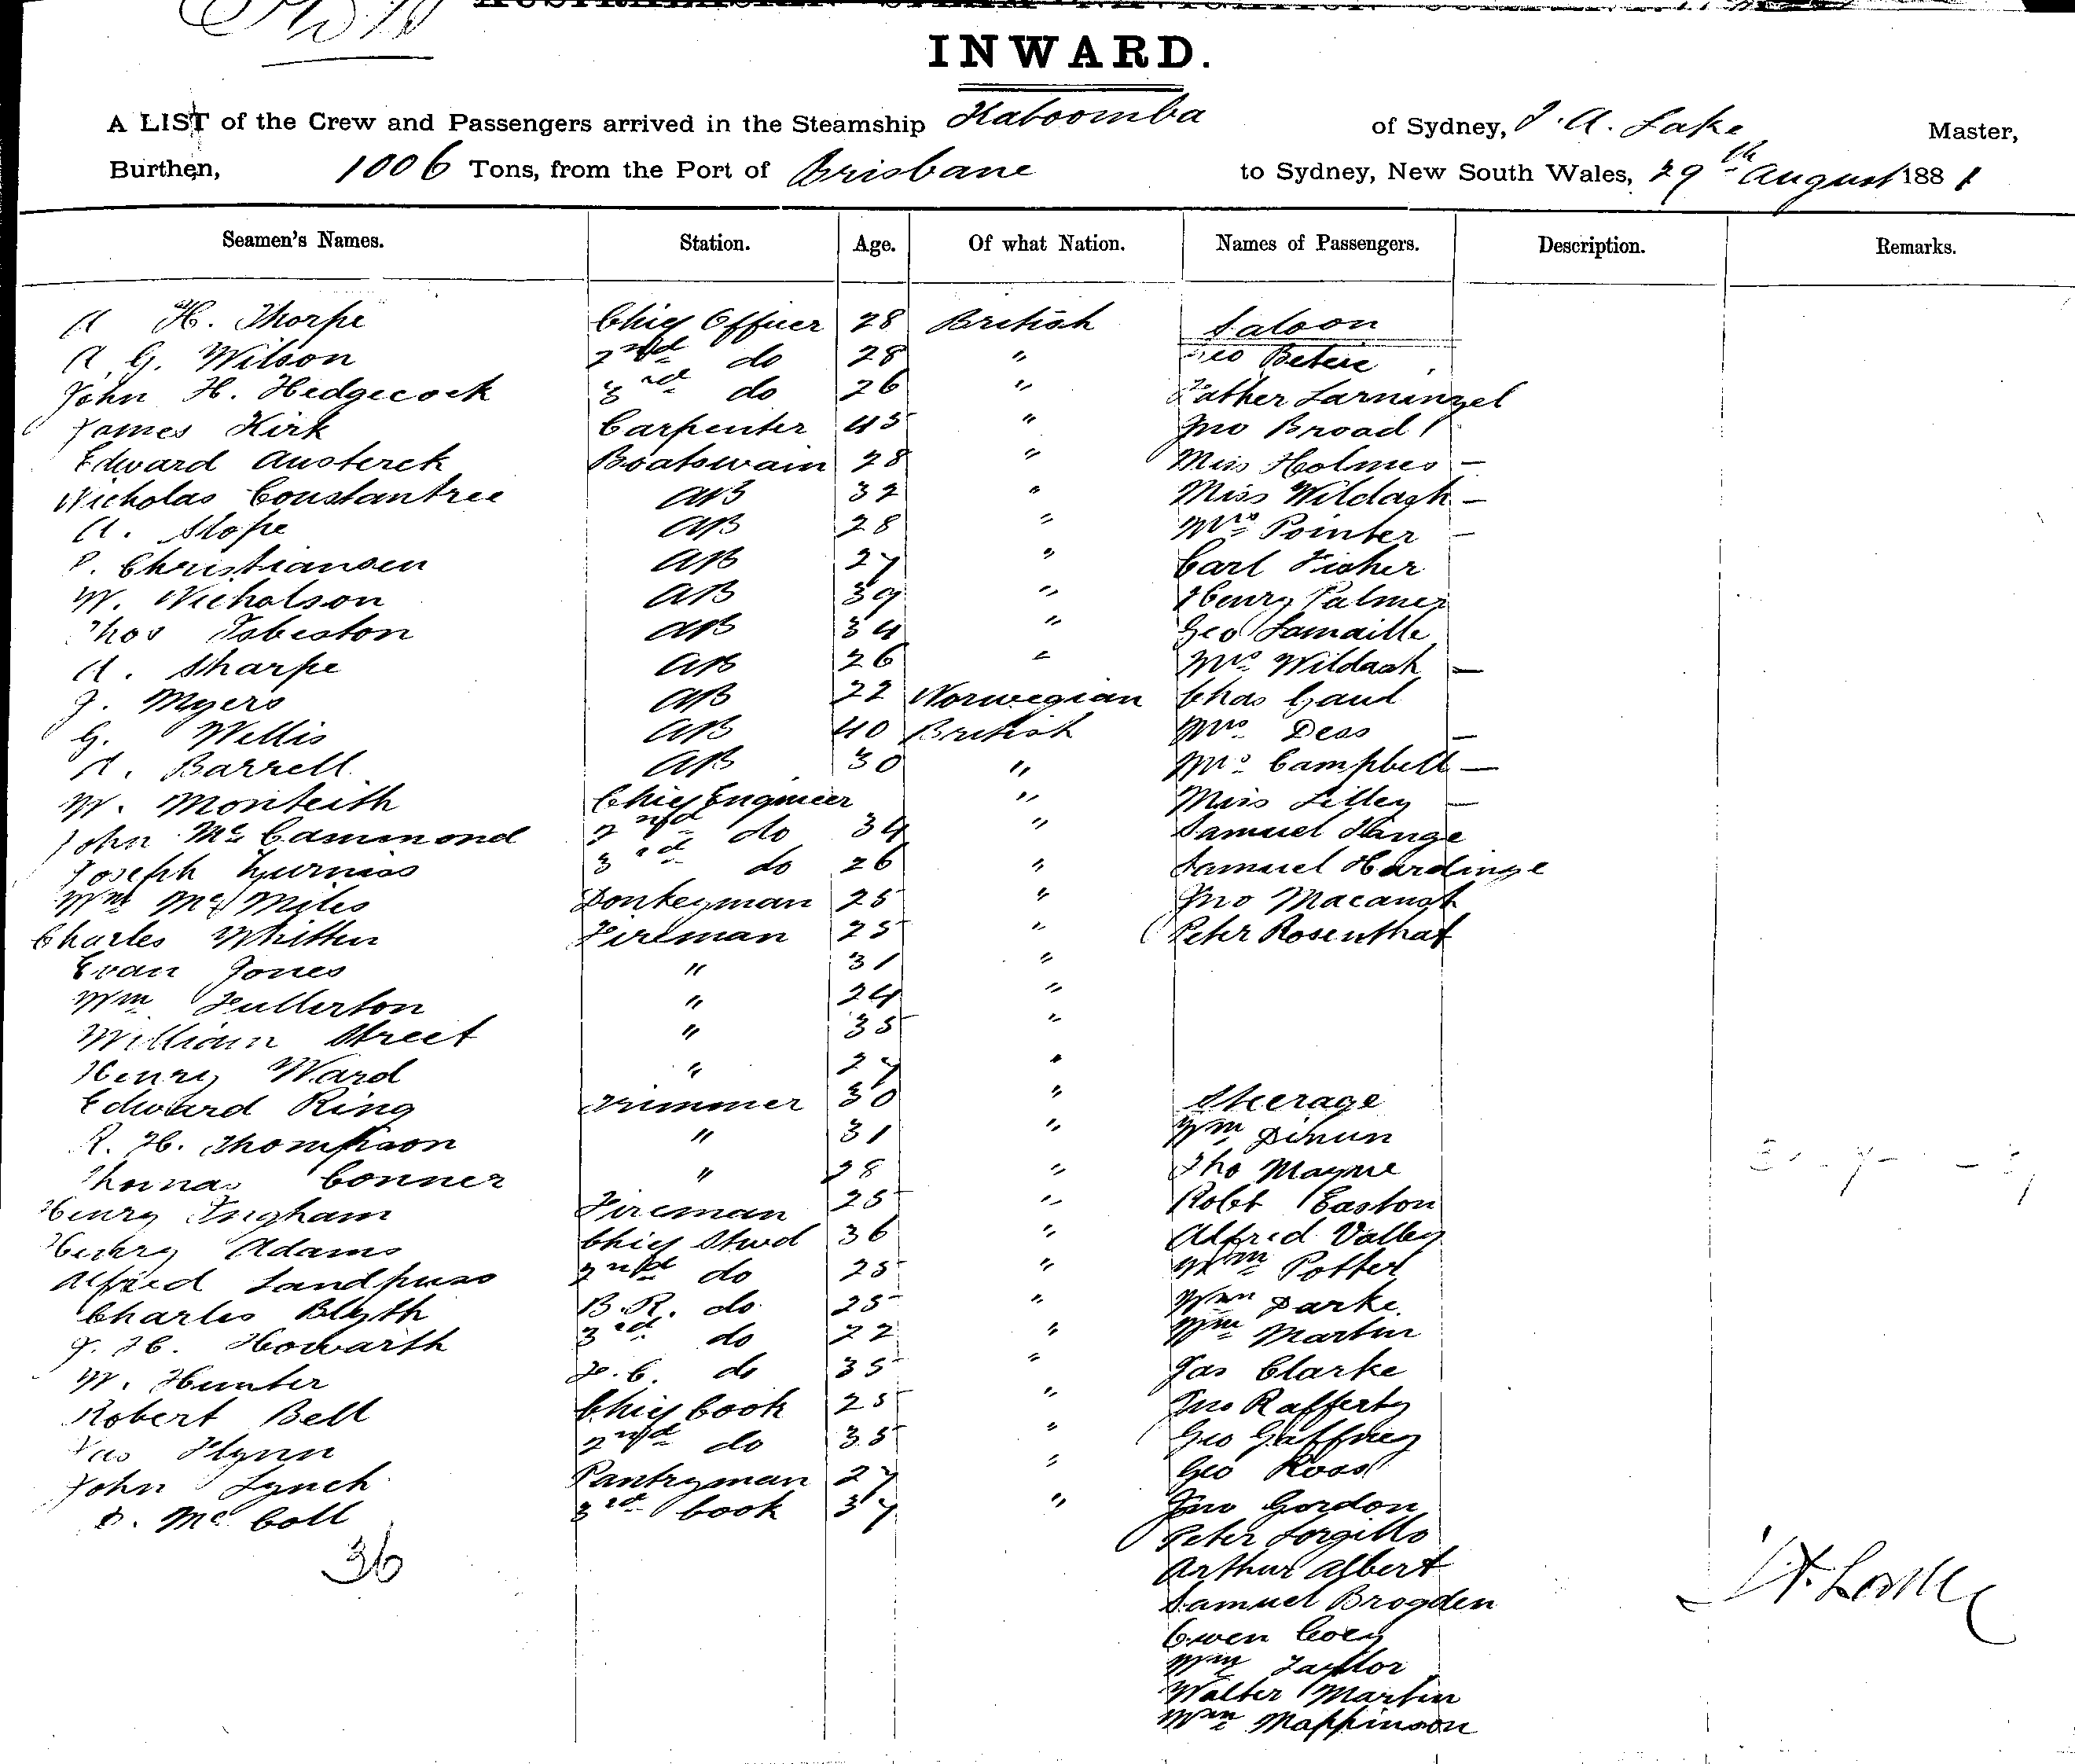 INWARD.
A LIST of the Crew and Passengers arrived in the Steamship Katoomba of Sydney, J. A. Lake Master,
Burthen, 1006 Tons, from the Port of Brisbane to Sydney, New South Wales, 29th August 1881
Seamen's Names. Station. Age. Of what Nation. Names of Passengers. Description. Remarks.
A H. Thorpe Chief Officer 28 British Saloon
A. G. Wilson 2nd do 28 "
John H. Hedgecock 3rd do 26 " Father
James Kirk Carpenter 45 " Jno Broad
Edward Austerck Boatswain 28 " Miss Holmes —
Nicholas Constantree AB 32 " Miss Wildash —
A. Slope AB 28 " Mrs Pointer —
P. Christiansen AB 27 " Carl Fisher
W. Nicholson AB 39 " Henry Palmer
Thos AB 34 " Geo Lamaille
A. Sharpe AB 26 " Mrs Wildash —
J. Myers AB 22 Norwegian Chas Gaud
G. Willis AB 40 British Mrs Dess —
A. Barrell AB 30 " Mrs Campbell —
W. Monteith Chief Engineer " Miss Lilley —
John McCammond 2nd do 34 " Samuel
Joseph Furniss 3rd do 26 " Samuel Hardinge
Wm Mc Miles Donkeyman 25 " Jno
Charles Whitten Fireman 25 " Peter Rosenthal
Evan Jones " 31 "
Wm Fullerton " 24 "
William Street " 35 "
Henry Ward " 27 "
Edward Ring Trimmer 30 " Steerage
R. H. Thompson " 31 " Wm
Thomas Conner " 28 " Tho Mayne
Henry Ingham Fireman 25 " Robt Easton
Henry Adams Chief Stwd 36 " Alfred Valley
Alfred 2nd do 25 " Wm Potter
Charles Blyth B.R. do 25 " Wm Darke
J. H. Howarth 3rd do 22 " Wm Martin
W. Hunter F.C. do 35 " Jas Clarke
Robert Bell Chief Cook 25 " Jno Rafferty
Jas Flynn 2nd do 35 " Geo Gaffney
John Lynch Pantryman 27 " Geo Ross
D. McColl 3rd Cook 37 " Jno Gordon
36 Peter
Arthur Albert
Samuel Brogden
Owen Coey
Wm Taylor
Walter Martin
Wm Mappinson